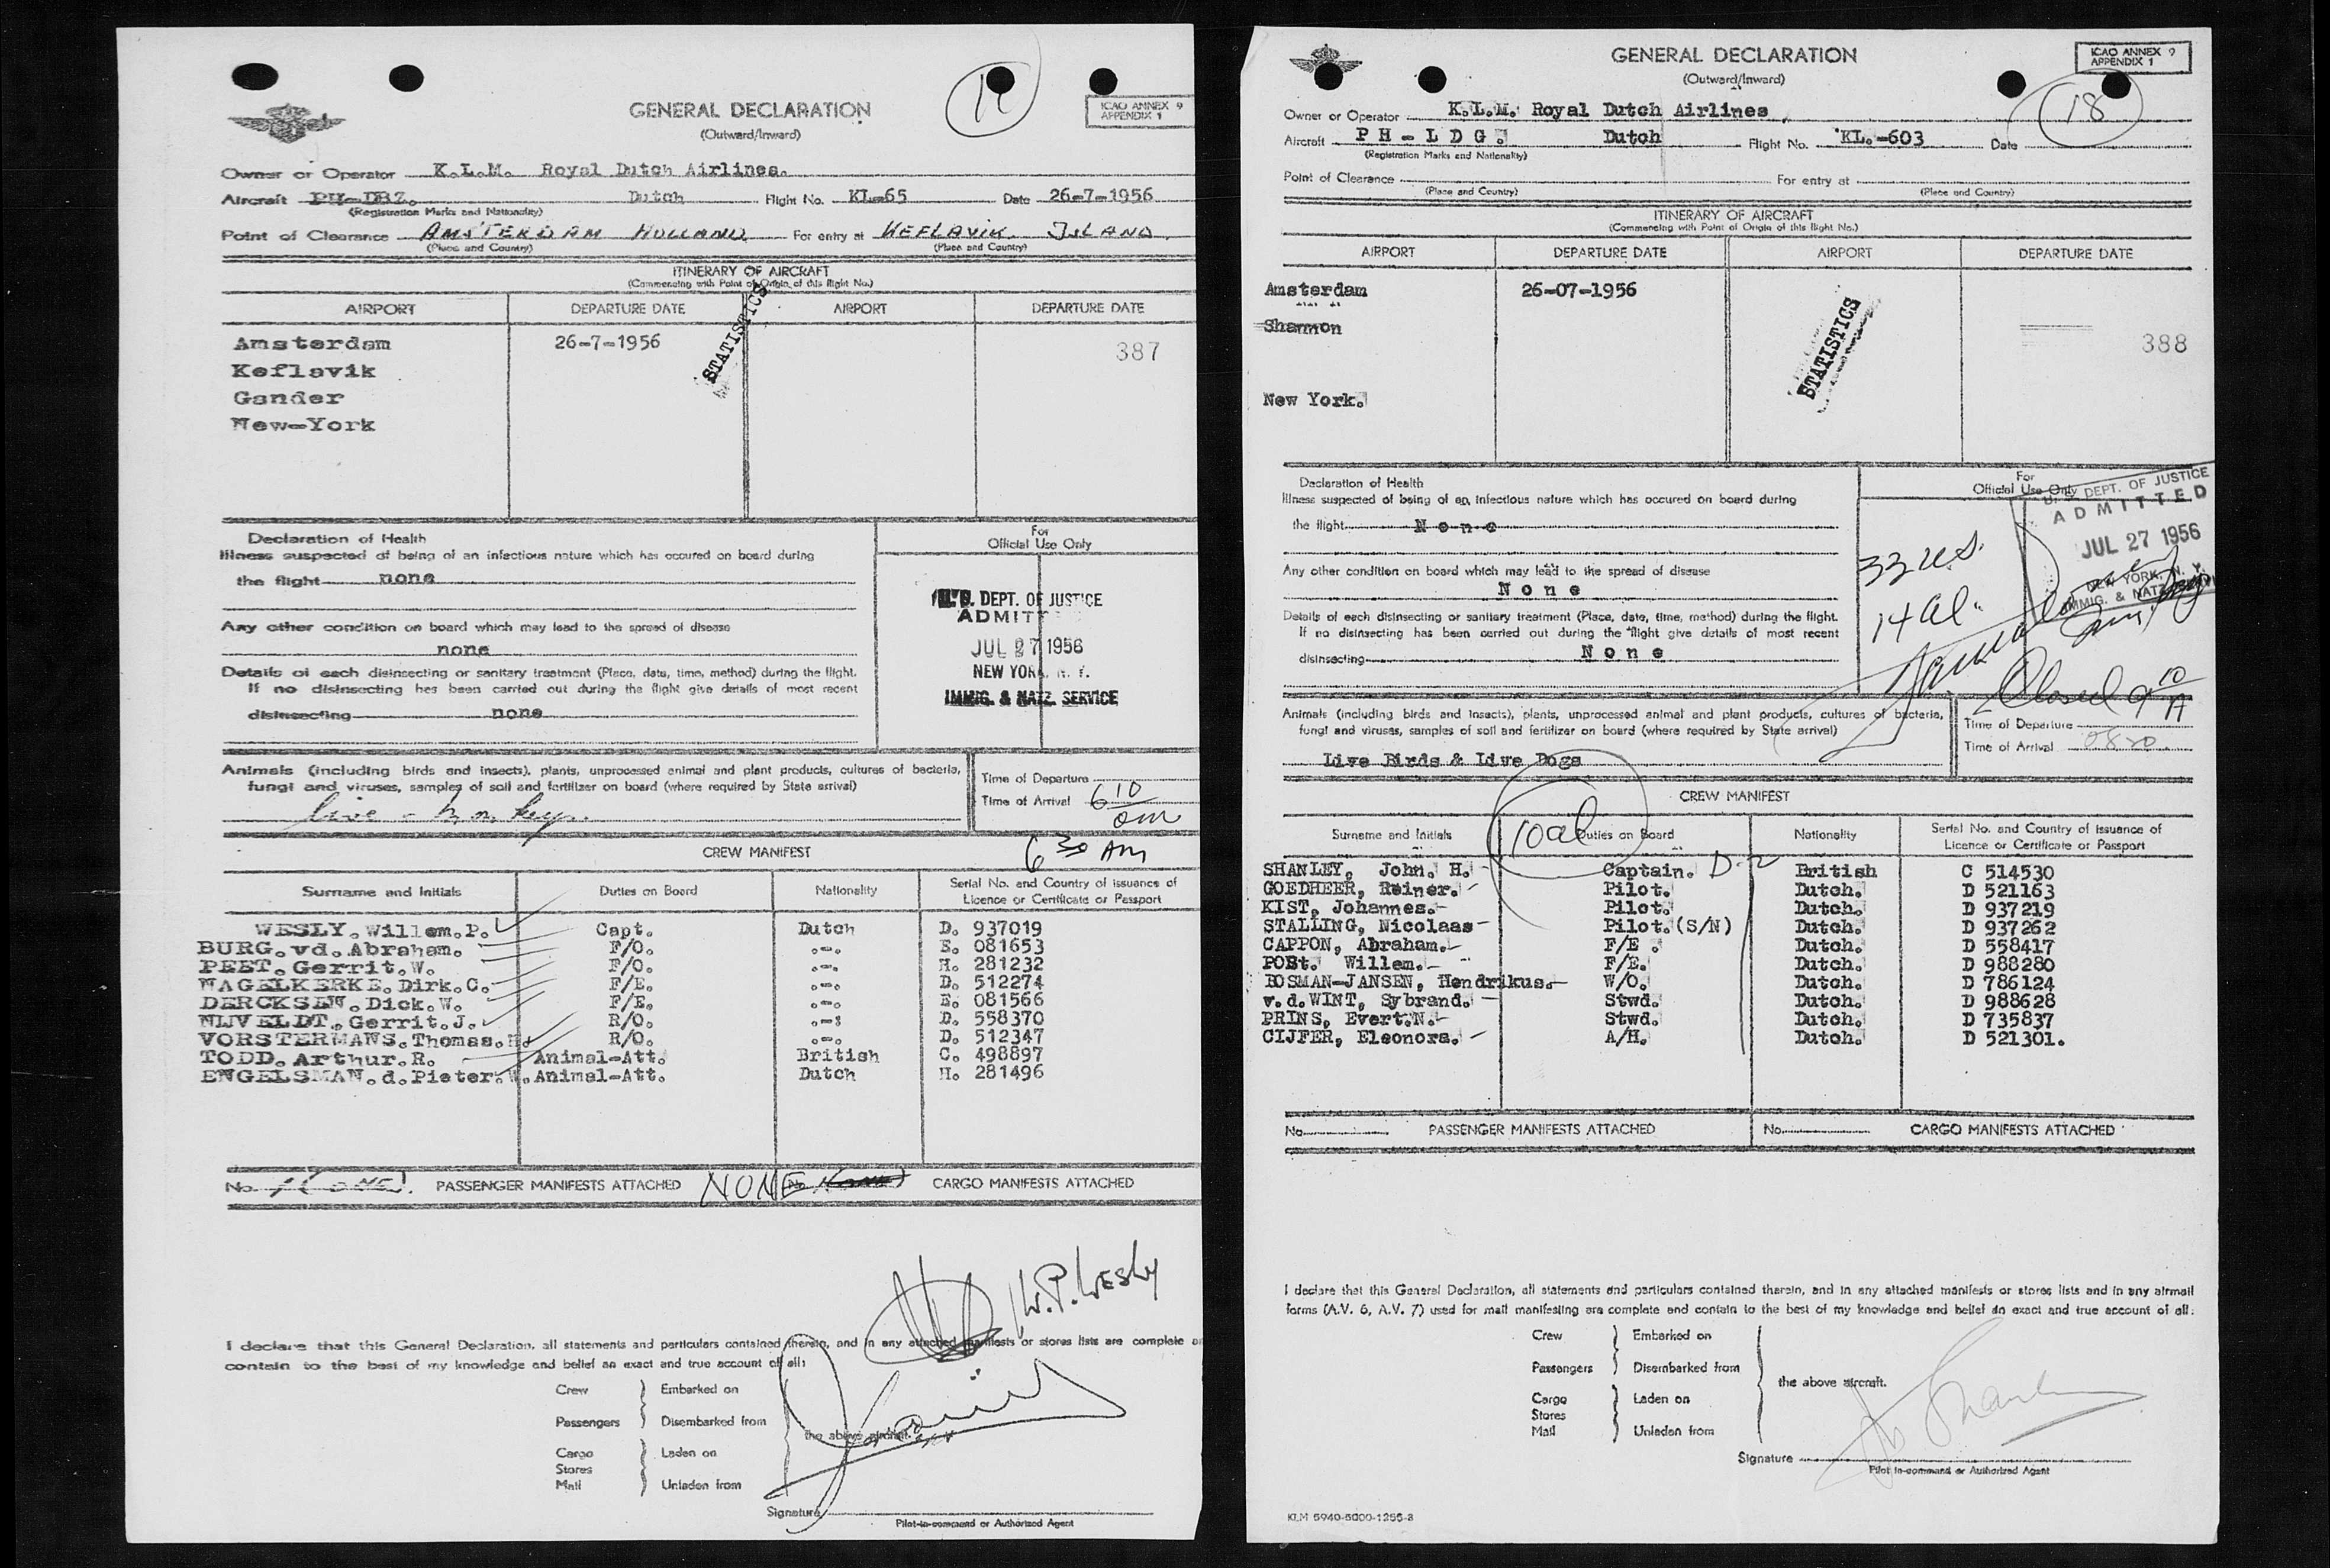 GENERAL DECLARATION
(Outward/Inward)
ICAO ANNEX 9
APPENDIX 1
Owner or Operator K.L.M. Royal Dutch Airlines.
Aircraft Dutch Flight No. KL-65 Date 26-7-1956
(Registration Marks and Nationality)
Point of Clearance AMSTERDAM HOLLAND For entry at KEFLAVIK
(Place and Country) (Place and Country)
ITINERARY OF AIRCRAFT
(Commencing with Point of Origin of this flight No.)
AIRPORT DEPARTURE DATE AIRPORT DEPARTURE DATE
STATISTICS
Amsterdam 26-7-1956 387
Keflavik
Gander
New-York
Declaration of Health
Illness suspected of being of an infectious nature which has occured on board during
the flight none
Any other condition on board which may lead to the spread of disease
none
Details of each disinsecting or sanitary treatment (Place, date, time, method) during the flight.
If no disinsecting has been carried out during the flight give details of most recent
disinsecting none
For
Official Use Only
U.S. DEPT. OF JUSTICE
ADMITT
JUL 27 1956
NEW YORK, N. Y.
IMMIG. & NATZ. SERVICE
Animals (including birds and insects), plants, unprocessed animal and plant products, cultures of bacteria,
fungi and viruses, samples of soil and fertilizer on board (where required by State arrival)
live
Time of Departure
Time of Arrival 6 10
am
6 30 AM
CREW MANIFEST
Surname and Initials Duties on Board Nationality Serial No. and Country of issuance of
Licence or Certificate or Passport
WESLY.Willem.P. Capt. Dutch D. 937019
BURG.vd.Abraham. F/O. .-. E. 081653
PEET.Gerrit.W. F/O. .-. H. 281232
WAGELKERKE.Dirk.C. F/E. .-. D. 512274
DERCKSEN.Dick.W. F/E. .-. E. 081566
NIJVELDT.Gerrit.J. R/O. .-. D. 558370
VORSTERMANS.Thomas.H. R/O. .-. D. 512347
TODD.Arthur.R. Animal-Att. British C. 498897
ENGELSMAN.d.Pieter.W. Animal-Att. Dutch H. 281496
No. 1 (ONE). PASSENGER MANIFESTS ATTACHED NONE No. CARGO MANIFESTS ATTACHED
W.P.WESLY
I declare that this General Declaration, all statements and particulars contained therein, and in any attached manifests or stores lists are complete
contain to the best of my knowledge and belief an exact and true account of all:
Crew Embarked on
Passengers Disembarked from
the above aircraft.
Cargo Laden on
Stores
Mail Unladen from
Signature
Pilot-in-command or Authorized Agent
GENERAL DECLARATION
(Outward/Inward)
ICAO ANNEX 9
APPENDIX 1
18
Owner or Operator K.L.M. Royal Dutch Airlines
Aircraft PH-LDG. Dutch Flight No. KL.-603 Date
(Registration Marks and Nationality)
Point of Clearance For entry at
(Place and Country) (Place and Country)
ITINERARY OF AIRCRAFT
(Commencing with Point of Origin of this flight No.)
AIRPORT DEPARTURE DATE AIRPORT DEPARTURE DATE
Amsterdam 26-07-1956
Shannon
STATISTICS
388
New York.
Declaration of Health
Illness suspected of being of an infectious nature which has occured on board during
the flight None
Any other condition on board which may lead to the spread of disease
None
Details of each disinsecting or sanitary treatment (Place, date, time, method) during the flight.
If no disinsecting has been carried out during the flight give details of most recent
disinsecting None
For
Official Use Only
U. S. DEPT. OF JUSTICE
ADMITTED
JUL 27 1956
NEW YORK, N. Y.
IMMIG. & NATZ.
33 U.S.
14 al.
Closed 9 10 A
Animals (including birds and insects), plants, unprocessed animal and plant products, cultures of bacteria,
fungi and viruses, samples of soil and fertilizer on board (where required by State arrival)
Live Birds & Live Dogs
Time of Departure
Time of Arrival
CREW MANIFEST
10 al
Surname and Initials Duties on Board Nationality Serial No. and Country of issuance of
Licence or Certificate or Passport
SHANLEY, John. H. Captain. D-2 British C 514530
GOEDHEER, Reiner. Pilot. Dutch. D 521163
KIST, Johannes. Pilot. Dutch. D 937219
STALLING, Nicolaas Pilot.(S/N) Dutch. D 937262
CAPPON, Abraham. F/E. Dutch. D 558417
POSt. Willem. F/E. Dutch. D 988280
BOSMAN-JANSEN, Hendrikus. W/O. Dutch. D 786124
v.d.WINT, Sybrand. Stwd. Dutch. D 988628
PRINS, Evert.N. Stwd. Dutch. D 735837
CIJFER, Eleonora. A/H. Dutch. D 521301.
No. PASSENGER MANIFESTS ATTACHED No. CARGO MANIFESTS ATTACHED
I declare that this General Declaration, all statements and particulars contained therein, and in any attached manifests or stores lists and in any airmail
forms (A.V. 6, A.V. 7) used for mail manifesting are complete and contain to the best of my knowledge and belief an exact and true account of all:
Crew Embarked on
Passengers Disembarked from
the above aircraft.
Cargo Laden on
Stores
Mail Unladen from
Signature
Pilot in-command or Authorized Agent
KLM 5940-5000-1255-3